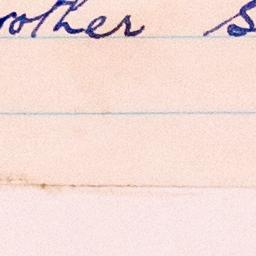 other s